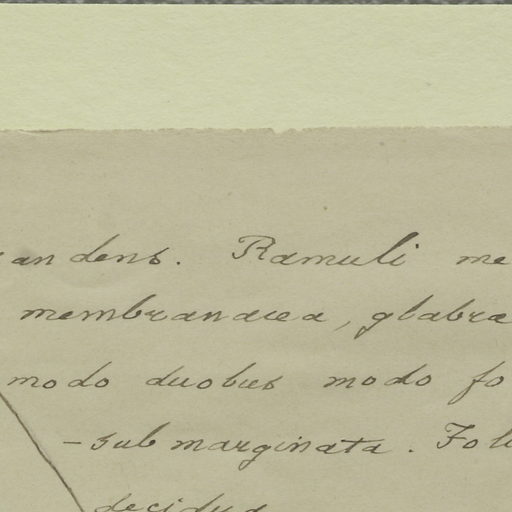 andens. Ramuli me
membranacea, glabra
modo duobus modo fo
-submarginata. Foli
decidua